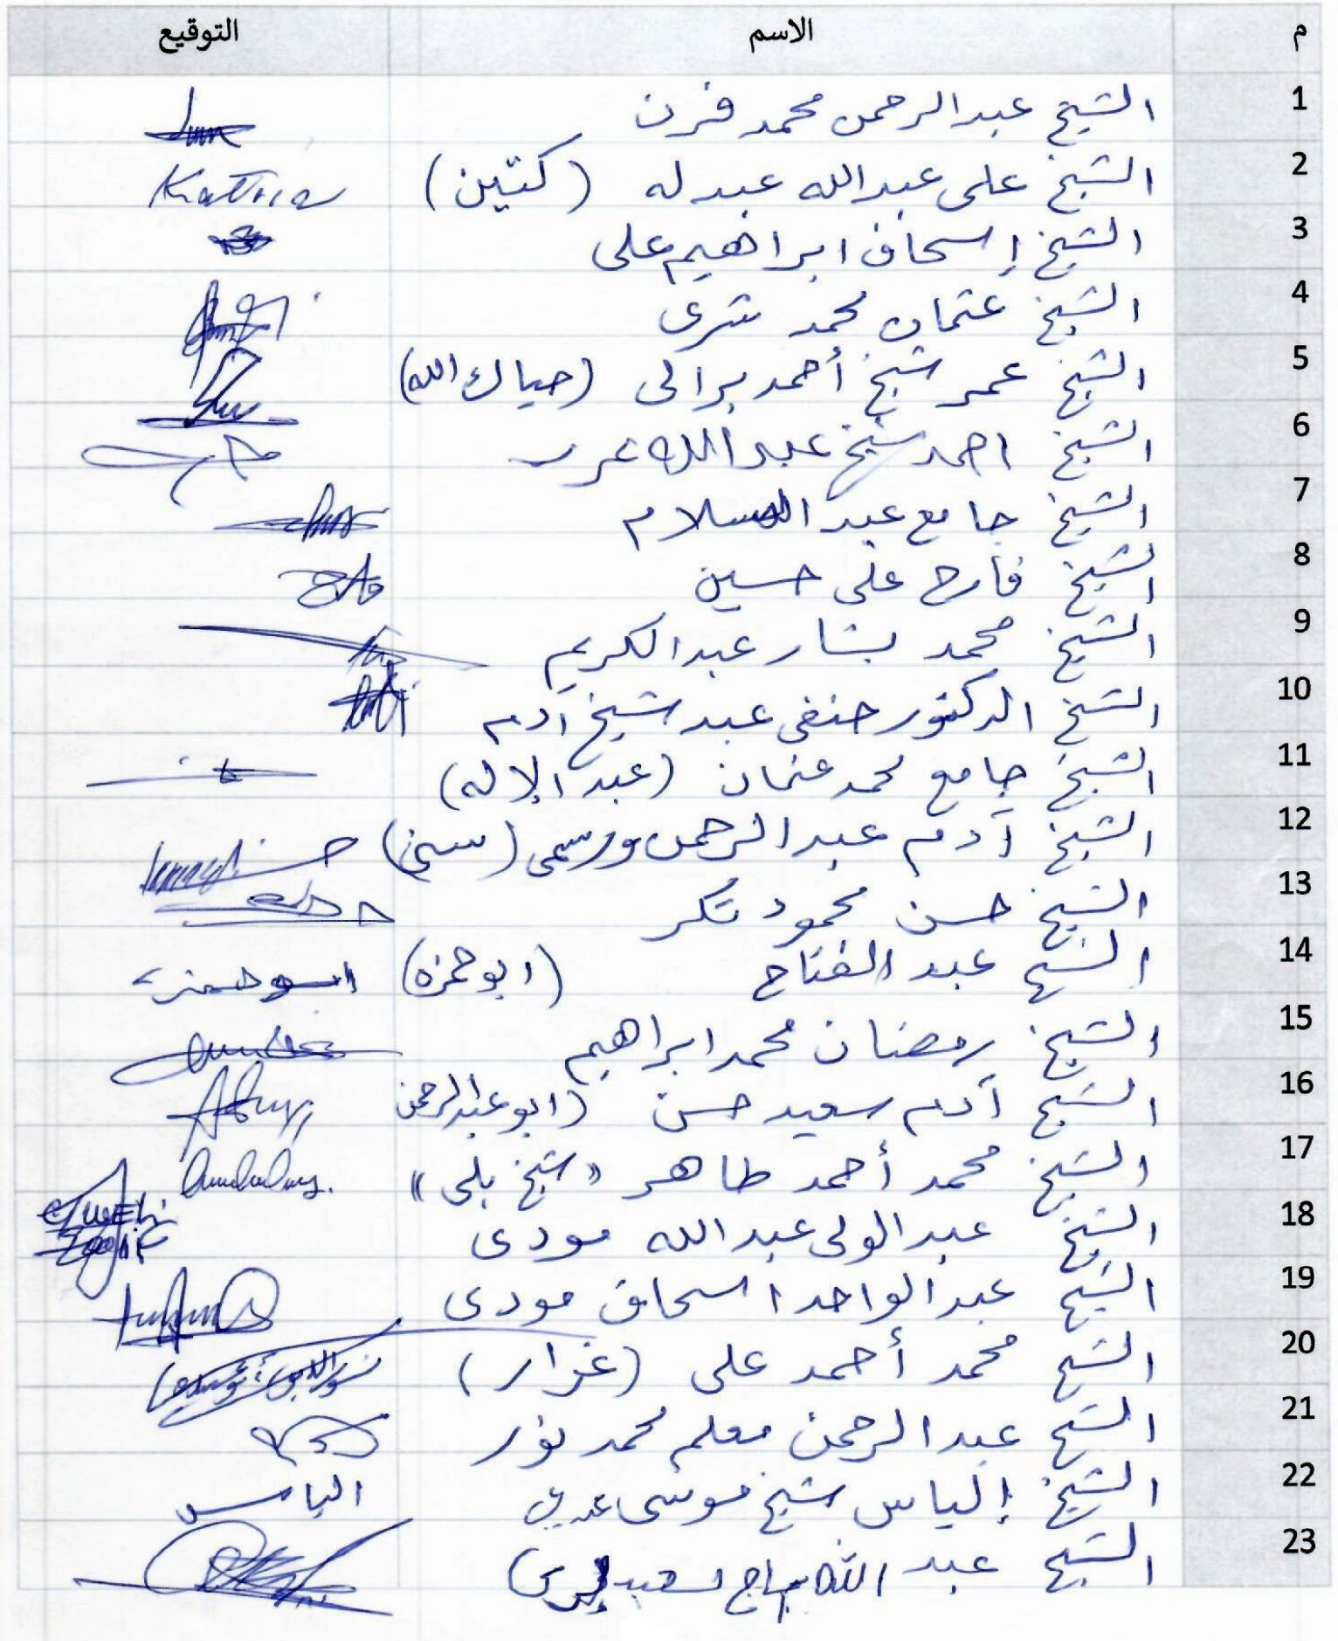 م الاسم التوقيع
1 الشيخ عبدالرحمن محمد فرن
2 الشيخ على عبدالله عبدله (كتين) Kattica
3 الشيخ إسحاق ابراهيم على
4 الشيخ عثمان محمد شرى
5 الشيخ عمر شيخ أحمد برالى (حياك الله)
6 الشيخ احمد شيخ عبدالله عرب
7 الشيخ جامع عبد السلام
8 الشيخ فارح على حسين
9 الشيخ محمد بشار عبدالكريم
10 الشيخ الدكتور حنفى عبد شيخ آدم
11 الشيخ جامع محمد عثمان (عبد الإله)
12 الشيخ آدم عبدالرحمن ورسمى (سنى)
13 الشيخ حسن محمود تكر
14 الشيخ عبد الفتاح (ابو حمزه) ابو حمزه
15 الشيخ رمضان محمد ابراهيم
16 الشيخ آدم سعيد حسن (ابو عبدالرحمن
17 الشيخ محمد أحمد طاهر «شيخ بلى»
18 الشيخ عبدالولى عبدالله مودى
19 الشيخ عبدالواحد اسحاق مودى
20 الشيخ محمد أحمد على (غرار)
21 الشيخ عبدالرحمن معلم محمد نور
22 الشيخ إلياس شيخ موسى الياس
23 الشيخ عبد الله